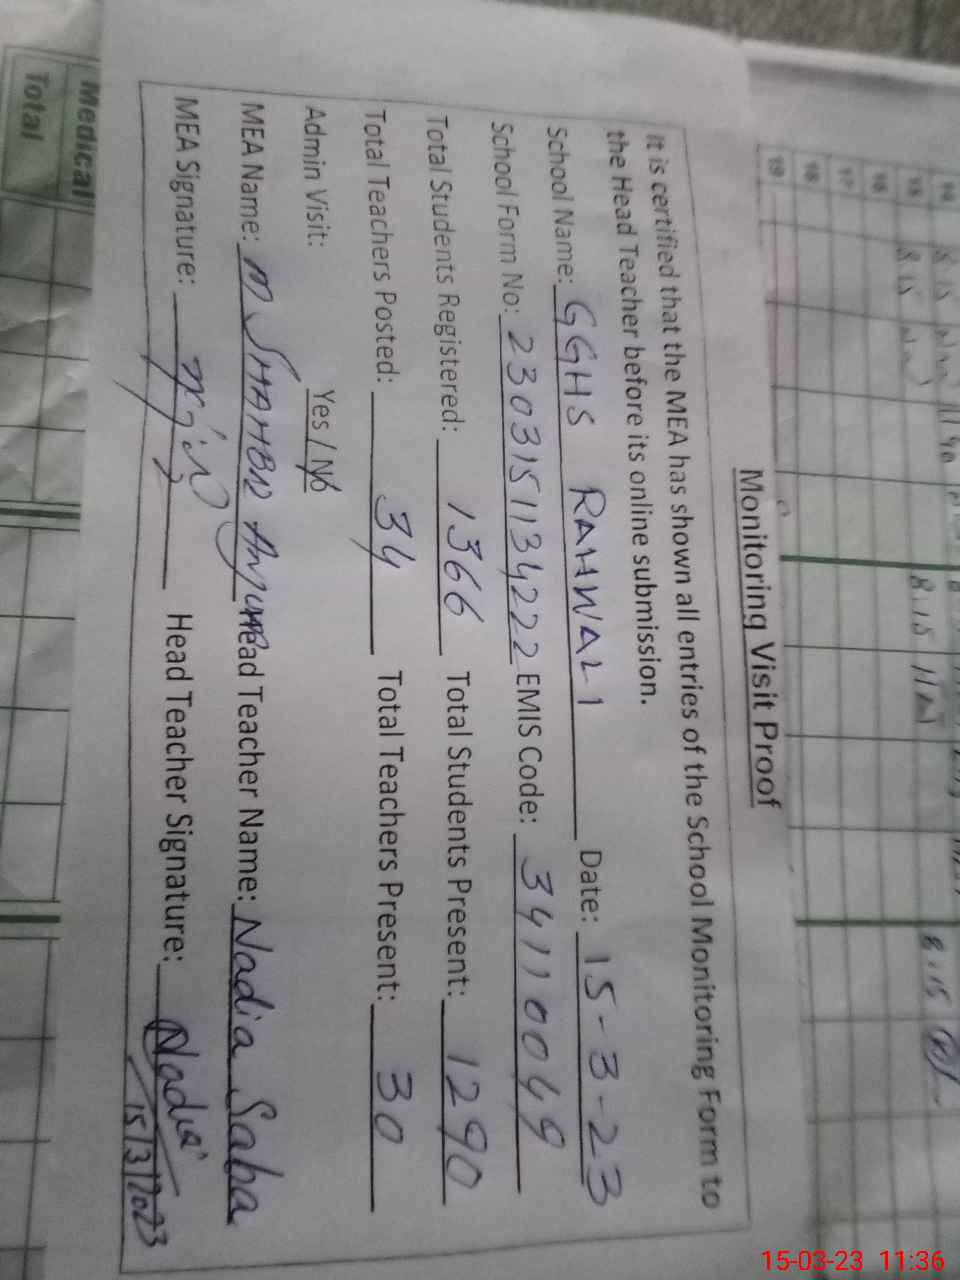 Monitoring Visit Proof
It is certified that the MEA has shown all entries of the School Monitoring Form to
the Head Teacher before its online submission.
School Name: GGHS RAHWALI Date: 15-3-23
School Form No: 2303151134222 EMIS Code: 34110049
Total Students Registered: 1366 Total Students Present: 1290
Total Teachers Posted: 34 Total Teachers Present: 30
Admin Visit: Yes / No
MEA Name: M SHAHBZ Anjum Head Teacher Name: Nadia Saba
MEA Signature: Head Teacher Signature: Nadia
15/3/2023
14 8 15
15 8 15 8:15 8:15
16
17
18
19
Medical
Total
15-03-23 11:36